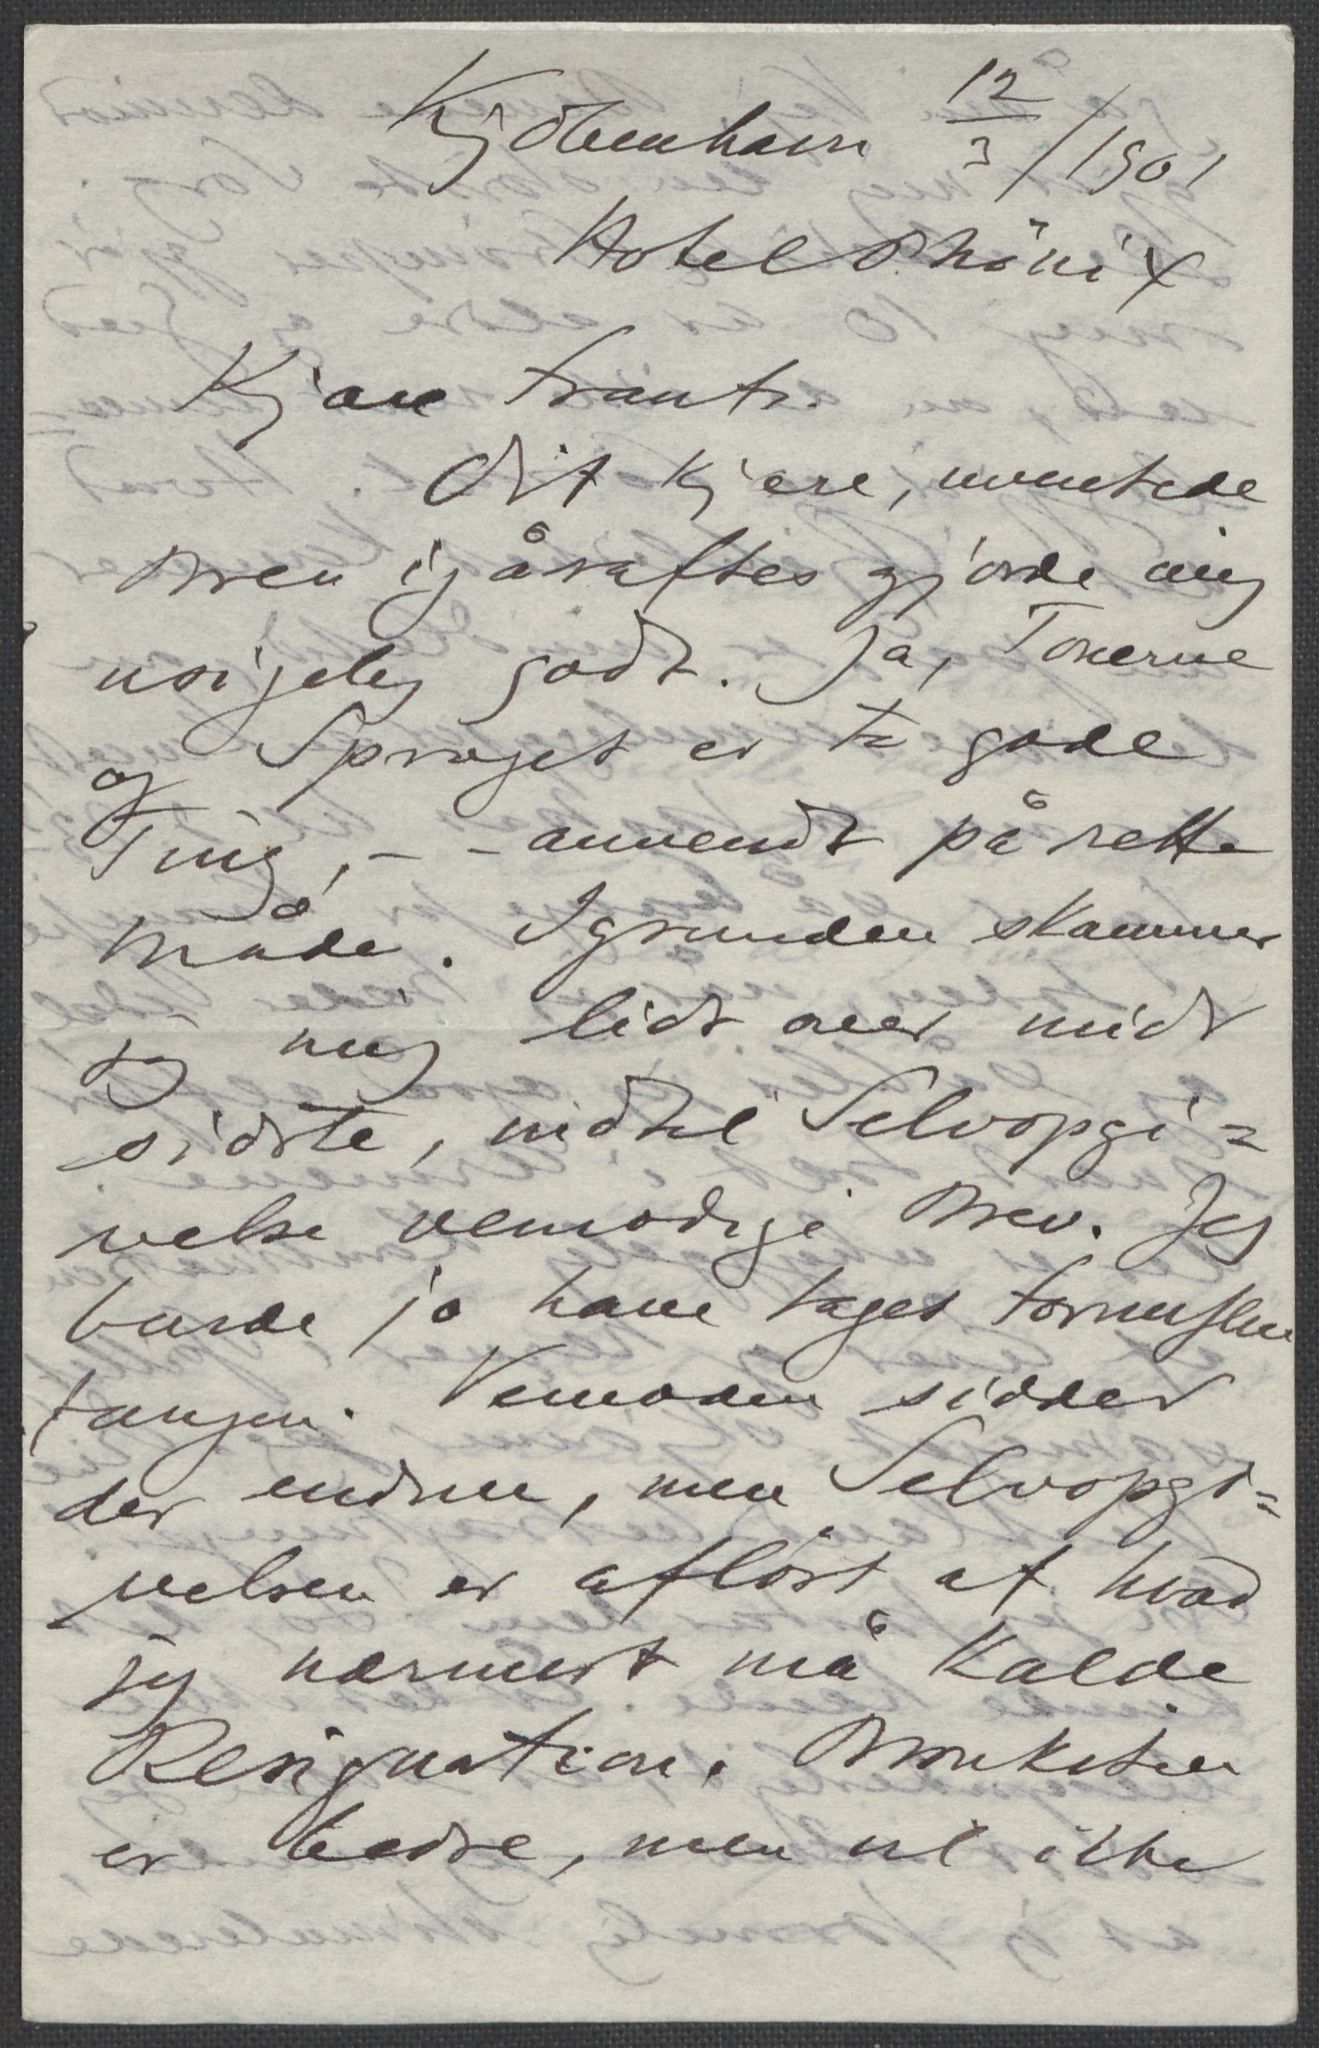 Kjøbenhavn 12/3/1901
Hotel Phönix
Kjære Frants.
Dit kjære, uventede
Brev igåraftes gjorde mig
usigelig godt. Ja, Tonerne
og Sproget er to gode
Ting, – – anvendt på rette
Måde. Igrunden skammer
jeg mig lidt over midt
sidste, indtil Selvopgi=
velse vemodige Brev. Jeg
burde jo have taget Fornuften
fangen. Vemoden sidder
der endnu, men Selvopgi=
velsen er afløst af hvad
jeg nærmest må kalde
Resignation. Bronkiten
er bedre, men vil ikke